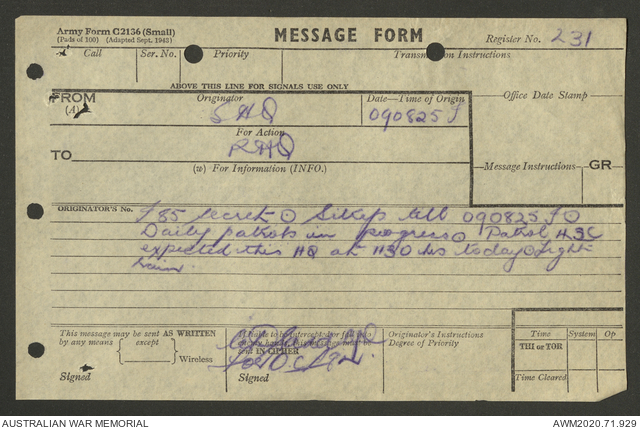 Army Form C2136 (Small)
(Pads of 100) (Adapted Sept. 1943)
MESSAGE FORM
Register No. 231
Call
Ser. No.
Priority
Transmission Instructions
ABOVE THIS LINE FOR SIGNALS USE ONLY
FROM
(A)
Originator
SHQ
Date—Time of Origin
090825I
Office Date Stamp
For Action
TO
RHQ
(w) For Information (INFO.)
Message Instructions
GR
ORIGINATOR'S No.
I85 secret O Sitrep tell 090825I O
Daily patrols in progress O Patrol H3C
expected this HQ at 1130 hrs today O Light
rain.
This message may be sent AS WRITTEN
by any means
except
Wireless
Signed
If liable to be intercepted or fall into
enemy hands this message must be
sent IN CIPHER
Signed
for O C
Originator's Instructions
Degree of Priority
Time
System
Op
THI or TOR
Time Cleared
AUSTRALIAN WAR MEMORIAL
AWM2020.71.929